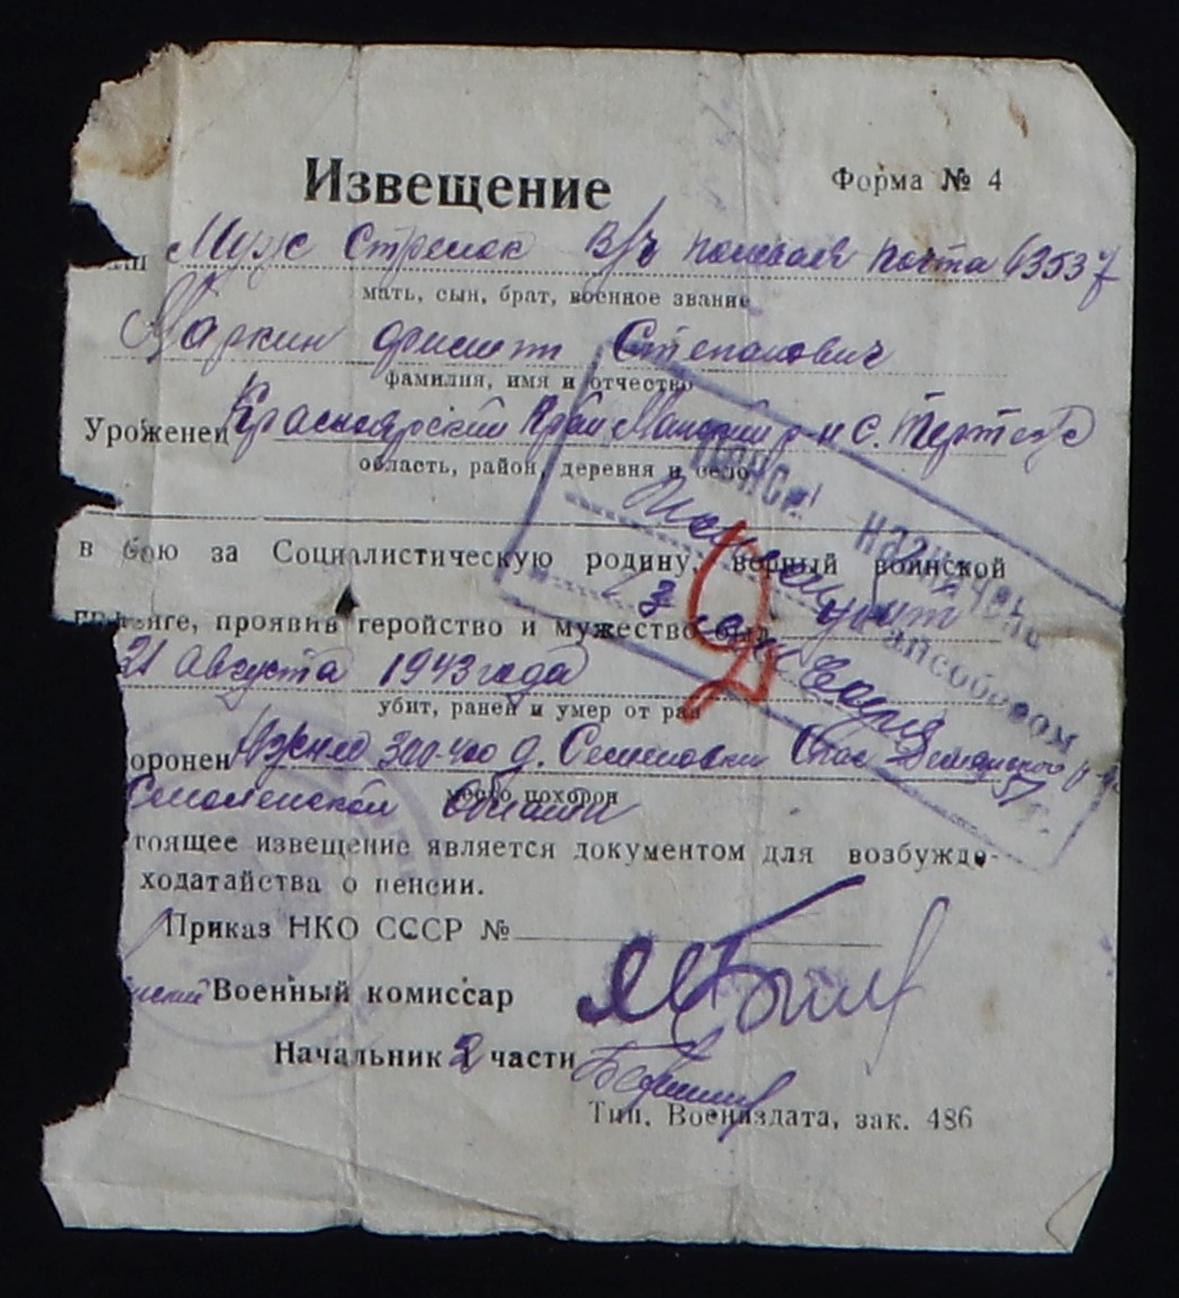 Извещение
Форма № 4
Муж Стрелок В/ч полевая почта 63537
мать, сын, брат, военное звание
Маркин Филипп Степанович
фамилия, имя и отчество
Уроженец Красноярский Край Манский р-н с.
область, район, деревня и село
в бою за Социалистическую родину, верный воинской
проявив геройство и мужество был
21 Августа 1943 года
убит, ранен и умер от ран
оронен Южнее 300-400 д. Семеновки Спас Деменского р-на
место похорон
Смоленской Области
тоящее извещение является документом для возбужде-
ходатайства о пенсии.
Приказ НКО СССР №
Военный комиссар
Начальник 2 части
Тип. Воениздата, зак. 486
назначена
райсобесом